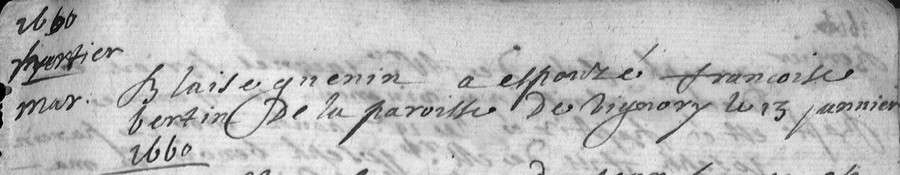 1660
mar.
Blaise guenin a espouzé francoise
bertin De la paroisse De vignory le 13 janvier
1660